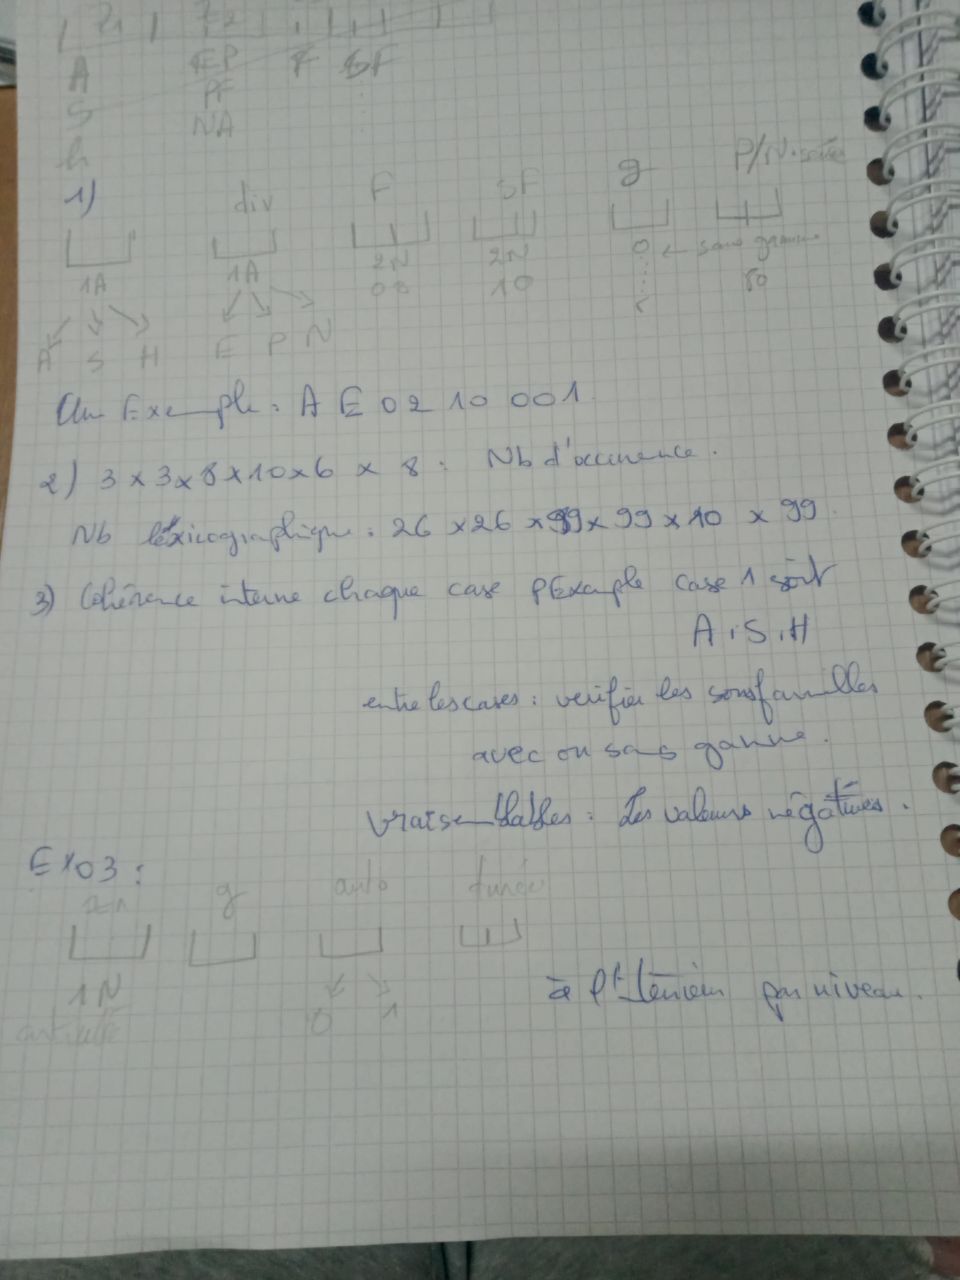 A EP F SF
S PF
h NA
1) div F SF g P/N.série
1A 1A 2N 2N 0 ← sans gamme
10 80
A S H E P N
Un Exemple : A E 02 10 001.
2) 3 x 3 x 8 x 10 x 6 x 8 : Nb d'occurence.
Nb léxicographique : 26 x 26 x 99 x 99 x 10 x 99.
3) Cohérence interne chaque case pExemple case 1 soit
A, S, H
entre les cases : vérifier les sous familles
avec ou sans gamme.
vraisemblables : Les valeurs négatives.
Exo 3 :
g auto
1N à l'intérieur par niveau.
0 1